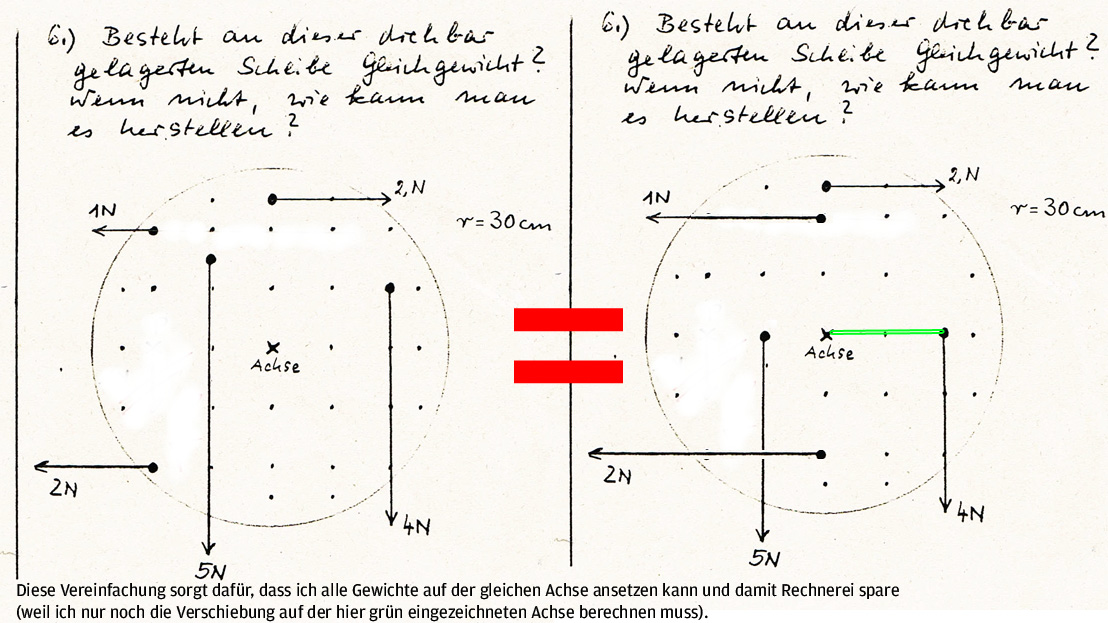 6.) Besteht an dieser drehbar
gelagerten Scheibe Gleichgewicht?
Wenn nicht, wie kann man
es herstellen?
2,N
1N
r = 30 cm
Achse
2N
4N
5N
6.) Besteht an dieser drehbar
gelagerten Scheibe Gleichgewicht?
Wenn nicht, wie kann man
es herstellen?
2,N
1N
r = 30 cm
Achse
2N
4N
5N
Diese Vereinfachung sorgt dafür, dass ich alle Gewichte auf der gleichen Achse ansetzen kann und damit Rechnerei spare
(weil ich nur noch die Verschiebung auf der hier grün eingezeichneten Achse berechnen muss).